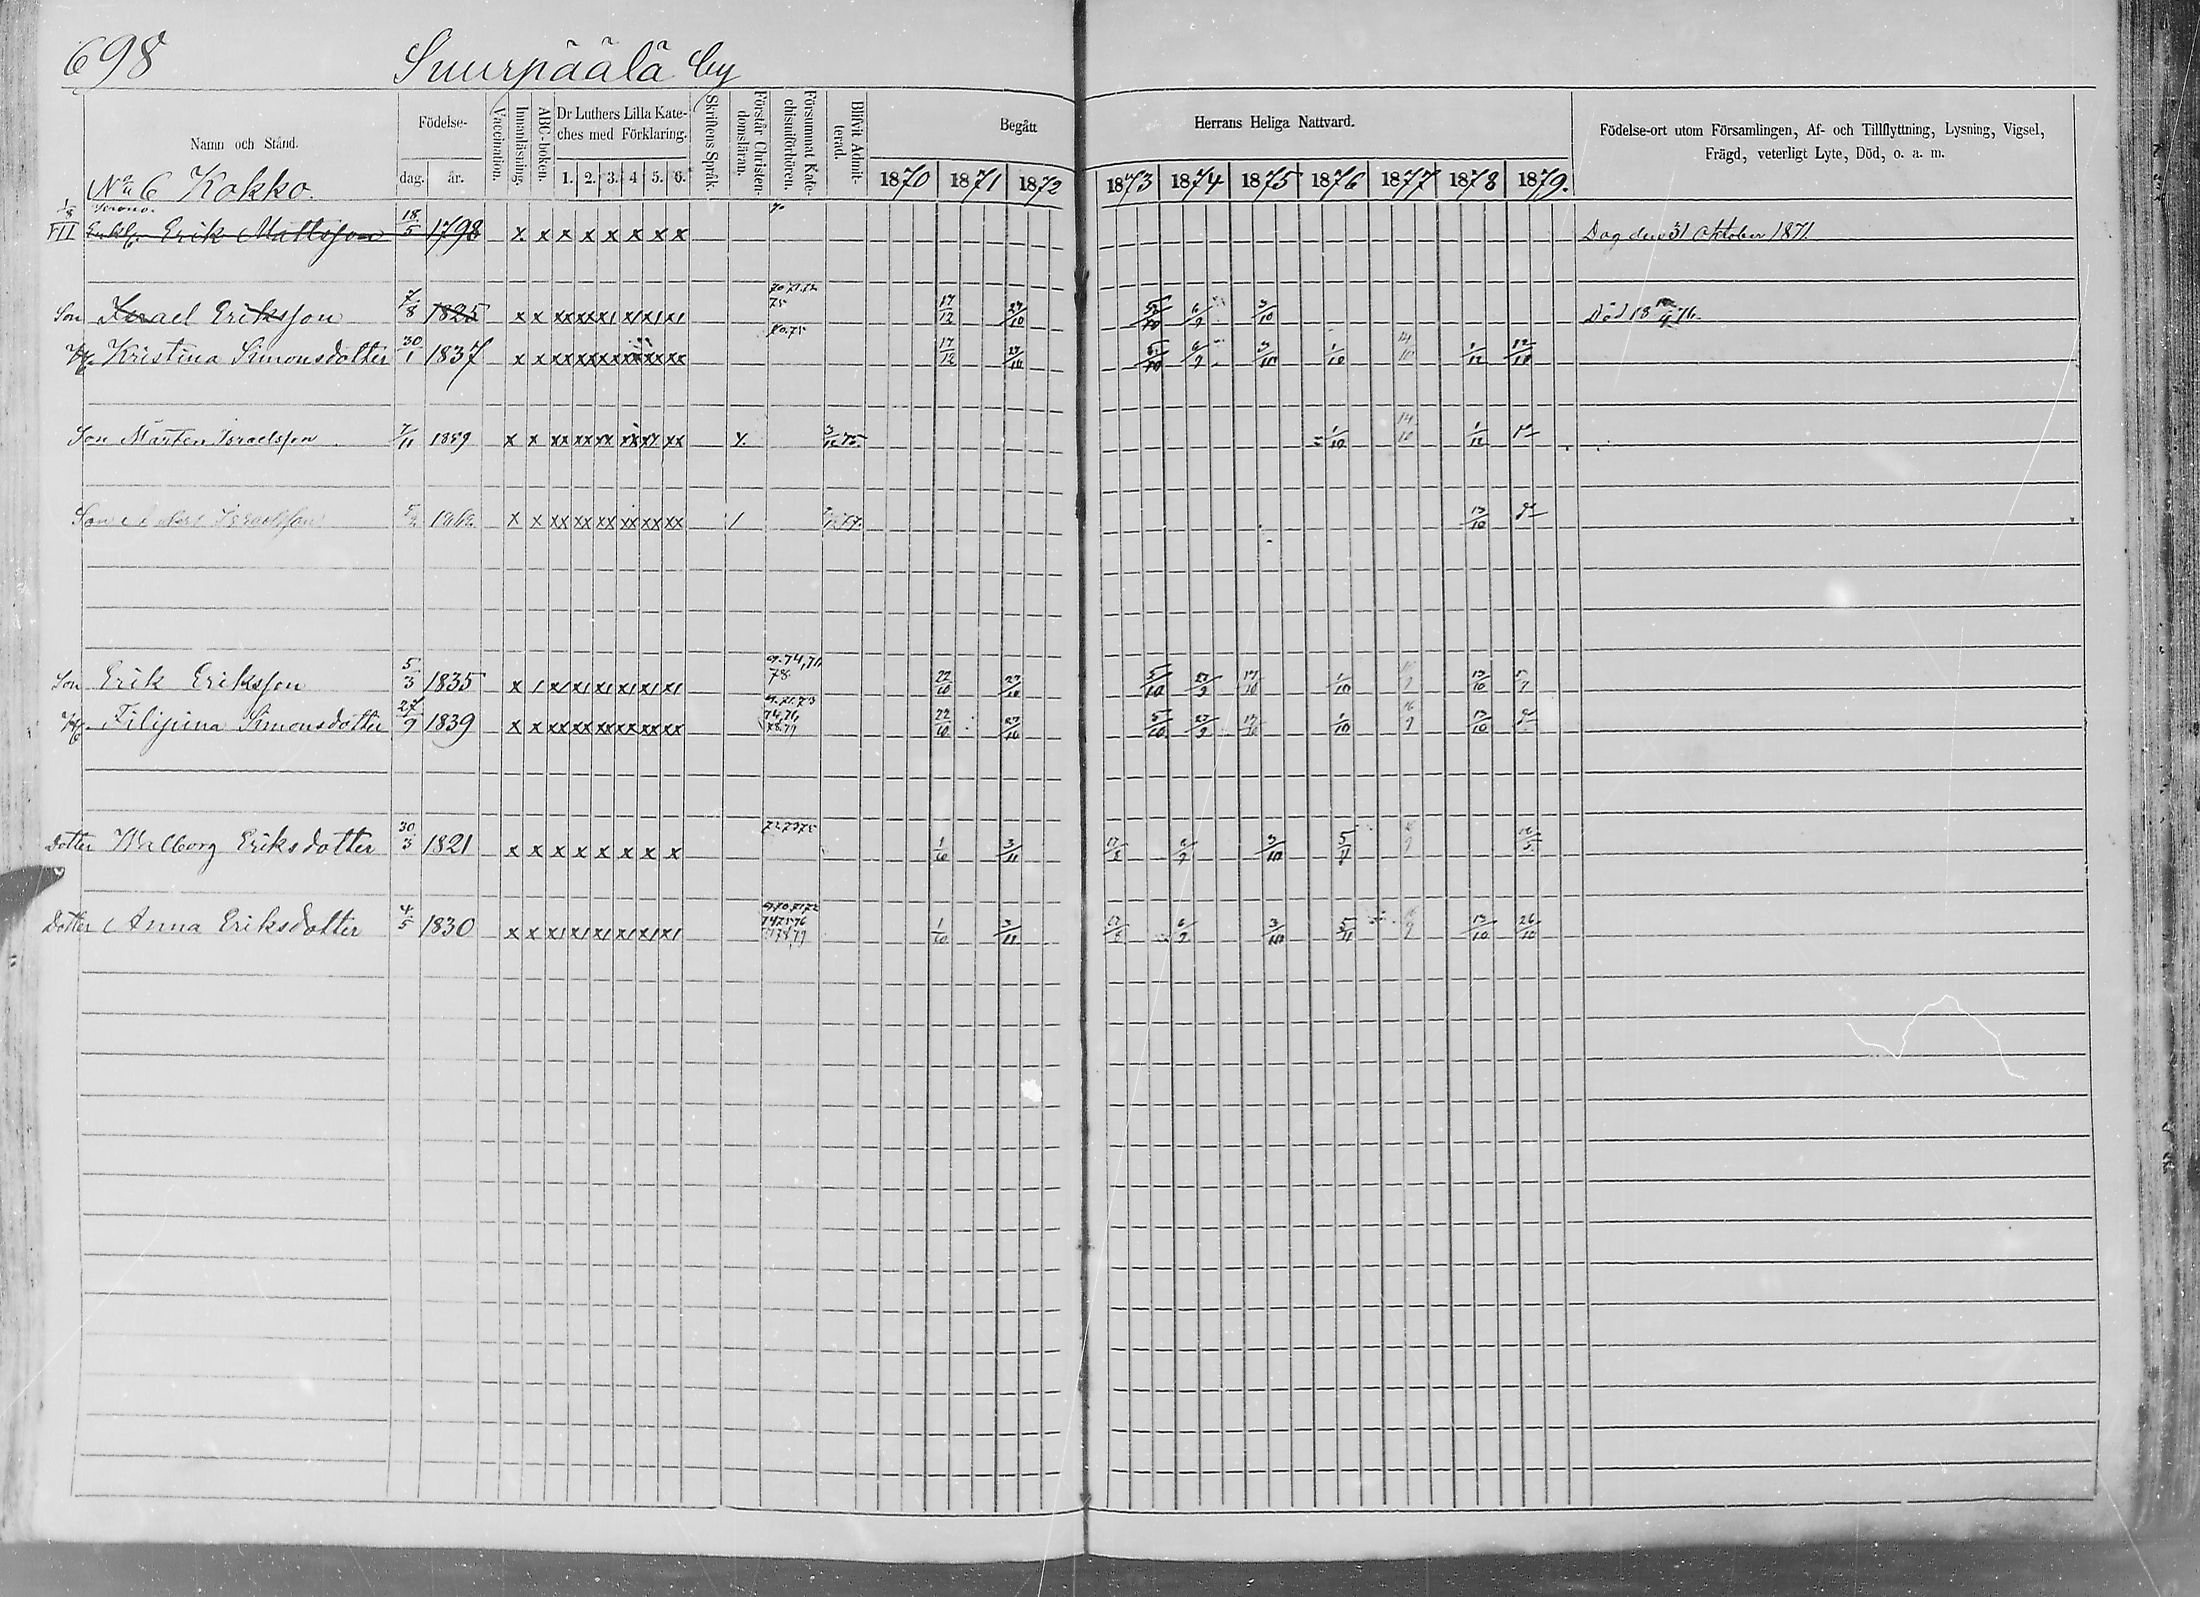 698 Suurpäälä by
Namn och Stånd. Födelse- dag. år. Vaccination. Innanläsning. ABC-boken. Dr Luthers Lilla Kateches med Förklaring. 1. 2. 3. 4 5. 6. Skriftens Språk. Förstår Christendomsläran. Försummat Katechismiförhören. Blifvit Admitterad. Begått Herrans Heliga Nattvard. Födelse-ort utom Församlingen, Af- och Tillflyttning, Lysning, Vigsel, Frägd, veterligt Lyte, Död, o. a. m.
1870 1871 1872 1873 1874 1875 1876 1877 1878 1879.
No 6 Kokko.
Erik Mattsson 18/5 1798 x x x x x x x x 70 Dog den 31 Oktober 1871.
Son Israel Eriksson 7/8 1825 x x xx xx x1 x1 x1 x1 70 71.72 75 17/12 27/10 5/10 6/9 3/10 Död 18 /4 76.
Kristina Simonsdotter 30/1 1837 x x xx xx xx xx xx xx 70.75 17/12 27/10 5/10 6/9 3/10 1/10 14/10 1/12 12/10
Son Mårten Israelsson 7/11 1859 x x xx xx xx xx x7 xx 1/10 14/10 1/12
Son Israelsson x x xx xx xx xx xx xx 1 13/10
Son Erik Eriksson 5/3 1835 x 1 x1 x1 x1 x1 x1 x1 78 22/10 27/10 5/10 27/9 17/10 1/10 13/10
Filipina Simonsdotter 27/9 1839 x x xx xx xx xx xx xx 74,76 78.79 22/10 27/10 5/10 27/9 17/10 1/10 16/9 13/10
Dotter Walborg Eriksdotter 30/3 1821 x x x x x x x x 72 73 75 1/10 3/11 6/9 3/10 5/11
Dotter Anna Eriksdotter 4/5 1830 x x x1 x1 x1 x1 x1 x1 1/10 3/11 6/9 3/10 5/11 13/10 26/10